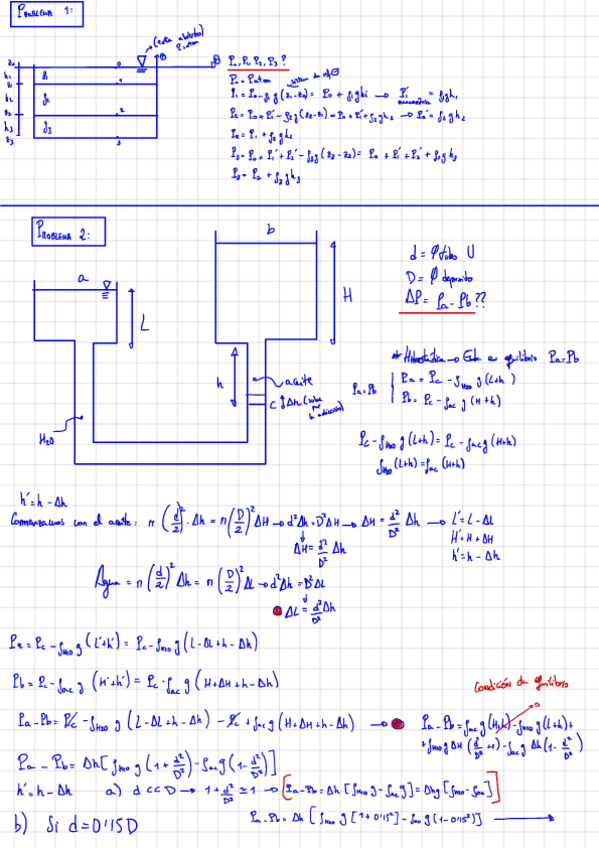 PROBLEMA 1:
(esta abierto)
Patm
P₀, P₁, P₂, P₃ ?
P₀ = Patm
P₁ = P₀ - ρ₁g (z₁-z₀) = P₀ + ρ₁gh₁ → P₁' = ρ₁gh₁
manométrica
P₂ = P₀ + P₁' - ρ₂g (z₂-z₁) = P₀ + P₁' + ρ₂gh₂ → P₂' = ρ₂gh₂
P₂ = P₁ + ρ₂gh₂
P₃ = P₀ + P₁' + P₂' - ρ₃g (z₃-z₂) = P₀ + P₁' + P₂' + ρ₃gh₃
P₃ = P₂ + ρ₃gh₃
z₀
h₁
z₁
h₂
z₂
h₃
z₃
ρ₁
ρ₂
ρ₃
0
1
2
3
PROBLEMA 2:
a
b
L
H
h
aceite
c
Δh (sube
H₂O
d = φ tubo U
D = φ deposito
ΔP = Pa - Pb ??
* Hidrostática → Esta en equilibrio Pa = Pb
Pa = Pb
Pa = Pc - ρH₂O g (L+h)
Pb = Pc - ρac g (H+h)
Pc - ρH₂O g (L+h) = Pc - ρac g (H+h)
ρH₂O (L+h) = ρac (H+h)
h' = h - Δh
Comenzamos con el aceite: π (d/2)² · Δh = π (D/2)² ΔH → d²Δh = D²ΔH → ΔH = d²/D² Δh → L' = L - ΔL
H' = H + ΔH
h' = h - Δh
ΔH = d²/D² Δh
Agua = π (d/2)² Δh = π (D/2)² ΔL → d²Δh = D²ΔL
ΔL = d²/D² Δh
Pa = Pc - ρH₂O g (L'+h') = Pc - ρH₂O g (L-ΔL+h-Δh)
Pb = Pc - ρac g (H'+h') = Pc - ρac g (H+ΔH+h-Δh)
Condición de equilibrio
Pa - Pb = Pc - ρH₂O g (L-ΔL+h-Δh) - Pc + ρac g (H+ΔH+h-Δh) → Pa - Pb = ρac g (H+h) - ρH₂O g (L+h) +
+ ρH₂O g Δh (d²/D² + 1) - ρac g Δh (1 - d²/D²)
Pa - Pb = Δh [ρH₂O g (1 + d²/D²) - ρac g (1 - d²/D²)]
h' = h - Δh a) d << D → 1 + d²/D² ≃ 1 → Pa - Pb = Δh [ρH₂O g - ρac g] = Δhg [ρH₂O - ρac]
b) Si d = 0'15D Pa - Pb = Δh [ρH₂O g [1 + 0'15²] - ρac g (1 - 0'15²)] →